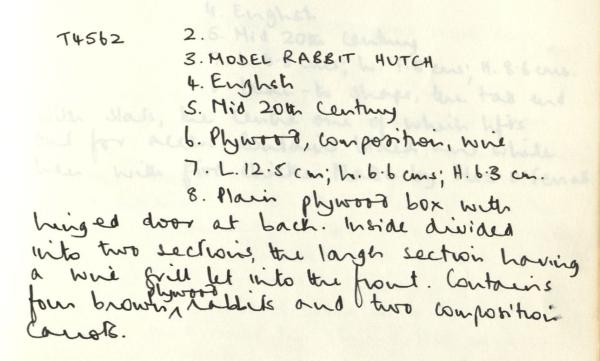 T4562 2.
3. MODEL RABBIT HUTCH
4. English
5. Mid 20th Century
6. Plywood, composition, wire
7. L. 12.5 cm; W. 6.6 cms; H. 6.3 cm
8. Plain plywood box with
hinged door at back. Inside divided
into two sections, the larger section having
a wire grill let into the front. Contains
four brown plywood rabbits and two composition
carrots.